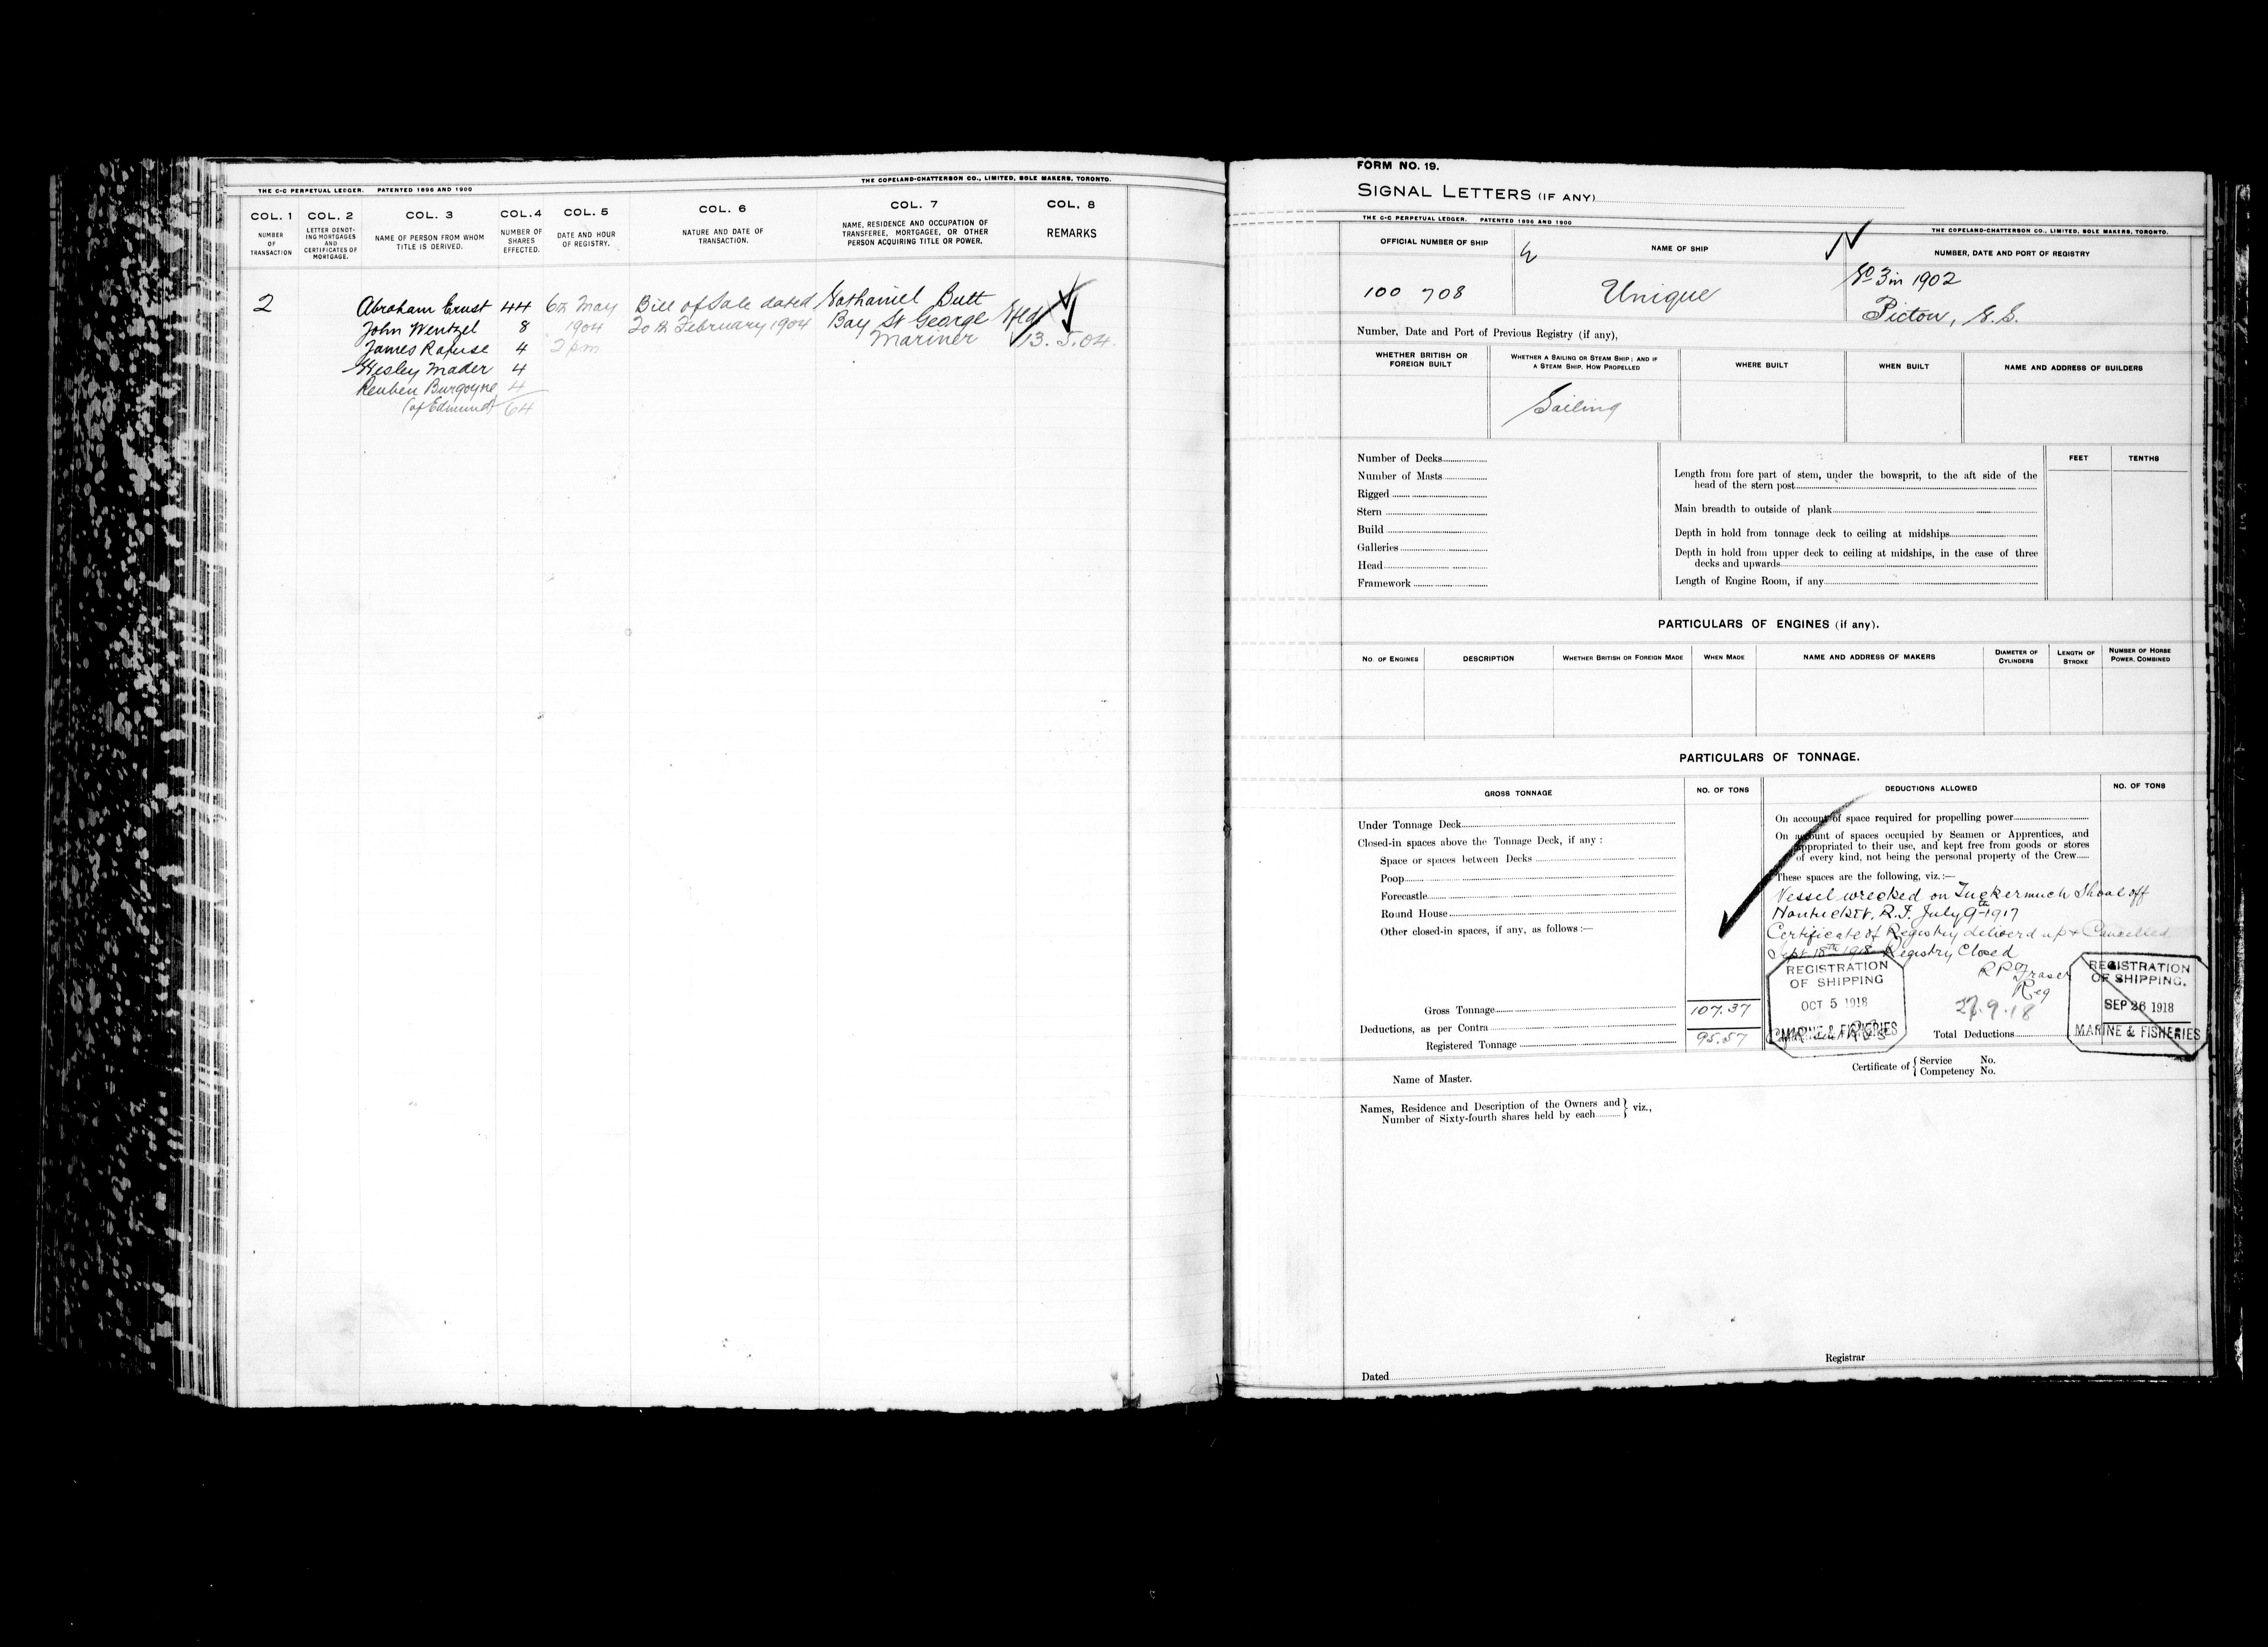 THE C-C PERPETUAL LEDGER. PATENTED 1896 AND 1900
THE COPELAND-CHATTERSON CO., LIMITED, SOLE MAKERS, TORONTO.
COL. 1
NUMBER
OF
TRANSACTION
COL. 2
LETTER DENOT-
ING MORTGAGES
AND
CERTIFICATES OF
MORTGAGE.
COL. 3
NAME OF PERSON FROM WHOM
TITLE IS DERIVED.
COL. 4
NUMBER OF
SHARES
EFFECTED.
COL. 5
DATE AND HOUR
OF REGISTRY.
COL. 6
NATURE AND DATE OF
TRANSACTION.
COL. 7
NAME, RESIDENCE AND OCCUPATION OF
TRANSFEREE, MORTGAGEE, OR OTHER
PERSON ACQUIRING TITLE OR POWER.
COL. 8
REMARKS
2 Abraham Ernst 44 6th May Bill of Sale dated Nathaniel Butt
John Wentzel 8 1904 20th February 1904 Bay St George Nfld
James Rafuse 4 2 pm Mariner 13.5.04.
Wesley Mader 4
Reuben Burgoyne 4
(of Edmund) 64
FORM NO. 19.
SIGNAL LETTERS (IF ANY)
THE C-C PERPETUAL LEDGER. PATENTED 1896 AND 1900
THE COPELAND-CHATTERSON CO., LIMITED, SOLE MAKERS, TORONTO.
OFFICIAL NUMBER OF SHIP
NAME OF SHIP
NUMBER, DATE AND PORT OF REGISTRY
100 708
Unique
No 3 in 1902
Pictou, N.S.
Number, Date and Port of Previous Registry (if any),
WHETHER BRITISH OR
FOREIGN BUILT
WHETHER A SAILING OR STEAM SHIP; AND IF
A STEAM SHIP, HOW PROPELLED
WHERE BUILT
WHEN BUILT
NAME AND ADDRESS OF BUILDERS
Sailing
Number of Decks
Number of Masts
Rigged
Stern
Build
Galleries
Head
Framework
FEET
TENTHS
Length from fore part of stem, under the bowsprit, to the aft side of the
head of the stern post
Main breadth to outside of plank
Depth in hold from tonnage deck to ceiling at midships
Depth in hold from upper deck to ceiling at midships, in the case of three
decks and upwards
Length of Engine Room, if any
PARTICULARS OF ENGINES (if any).
NO. OF ENGINES
DESCRIPTION
WHETHER BRITISH OR FOREIGN MADE
WHEN MADE
NAME AND ADDRESS OF MAKERS
DIAMETER OF
CYLINDERS
LENGTH OF
STROKE
NUMBER OF HORSE
POWER, COMBINED
PARTICULARS OF TONNAGE.
GROSS TONNAGE
NO. OF TONS
DEDUCTIONS ALLOWED
NO. OF TONS
Under Tonnage Deck
Closed-in spaces above the Tonnage Deck, if any :
Space or spaces between Decks
Poop
Forecastle
Round House
Other closed-in spaces, if any, as follows :—
Gross Tonnage 107.37
Deductions, as per Contra
Registered Tonnage 95.57
On account of space required for propelling power
On account of spaces occupied by Seamen or Apprentices, and
appropriated to their use, and kept free from goods or stores
of every kind, not being the personal property of the Crew
These spaces are the following, viz.:—
Vessel wrecked on Tuckermuch Shoal off
Nantucket. R.I. July 9th 1917
Certificate of Registry deliverd up & Cancelled
Sept 18th 1918 Registry Closed
R P Fraser
Reg
27.9.18
REGISTRATION
OF SHIPPING
OCT 5 1918
MARINE & FISHERIES
REGISTRATION
OF SHIPPING.
SEP 26 1918
MARINE & FISHERIES
Total Deductions
Name of Master.
Certificate of { Service No.
Competency No.
Names, Residence and Description of the Owners and } viz.,
Number of Sixty-fourth shares held by each
Dated
Registrar